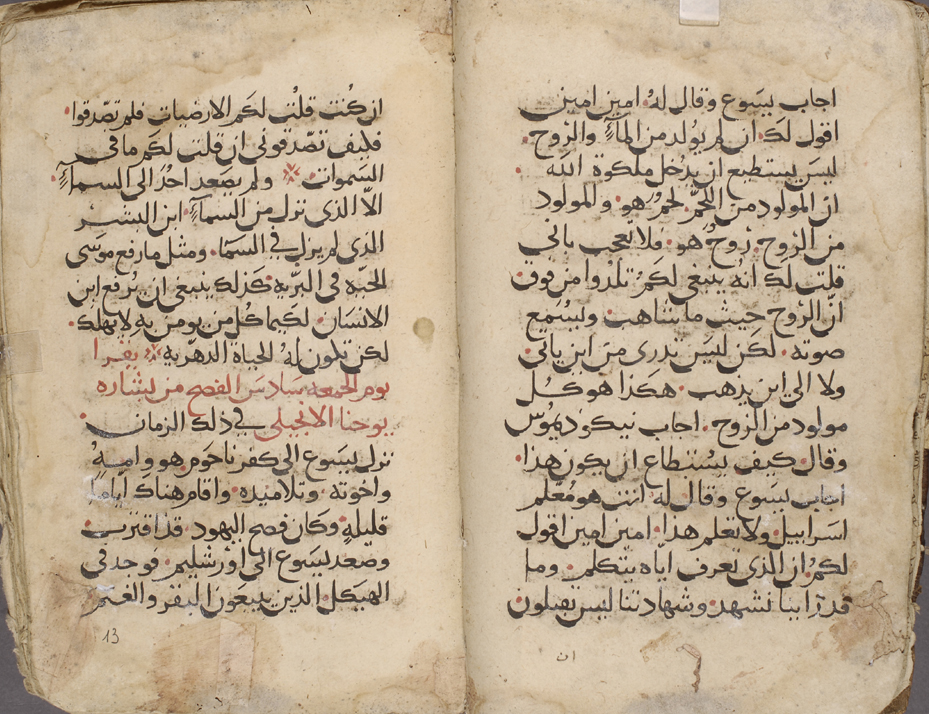 اجاب يسوع وقال له امين امين
اقول لك ان لم يولد من المآء والروح
ليس يستطيع ان يدخل ملكوة الله
ان المولود من اللحم لحمٌ هو والمولود
من الروح روحٌ هو فلا تعجب باني
قلت لك انه ينبغي لكم تلدوا من فوق
انّ الروح حيث ما يشاهب وليسُمع
صوته لكن ليس تدرى من اين ياتى
ولا الي اين يذهب هكذا هو كل
مولود من الروح اجاب نيكوديموس
وقال كيف يستطاع ان يكون هذا
اجاب يسوع وقال له انت هو مُعلم
اسراييل ولا تعلم هذا امين امين اقول
لكم ان الذى نعرف ايّاه نتكلم وما
قد راينا نشهد وشهادتنا ليس تقبلون
ان
ان كنت قلت لكم الارضيات فلم تصّدقوا
فكيف تصّدقوني ان قلت لكم ما في
السموات ولم يصعد احدُ الى السمآء
الاّ الذى نزل من السمآء ابن البشر
الذى لم يزل في السمآ ومثل ما رفع موسى
الحيّه في البّريه كذلك ينبغى ان يُرفع ابن
الانسان لكيما كُل من يومن به لا يهلك
لكن تكون له الحياة الدهريه يقرا
يوم الجمعه سادس الفصح من بشاره
يوحنا الانجيلى في ذلك الزمان
نزل يسوع الى كفرناحوم هو وامه
واخوته وتلاميذه واقام هناك اياما
قليلةٍ وكان فصح اليهود قد اقترب
وصعد يسوع الى اورشليم فوجد في
الهيكل الذين يبيعون البقر والغنم
13